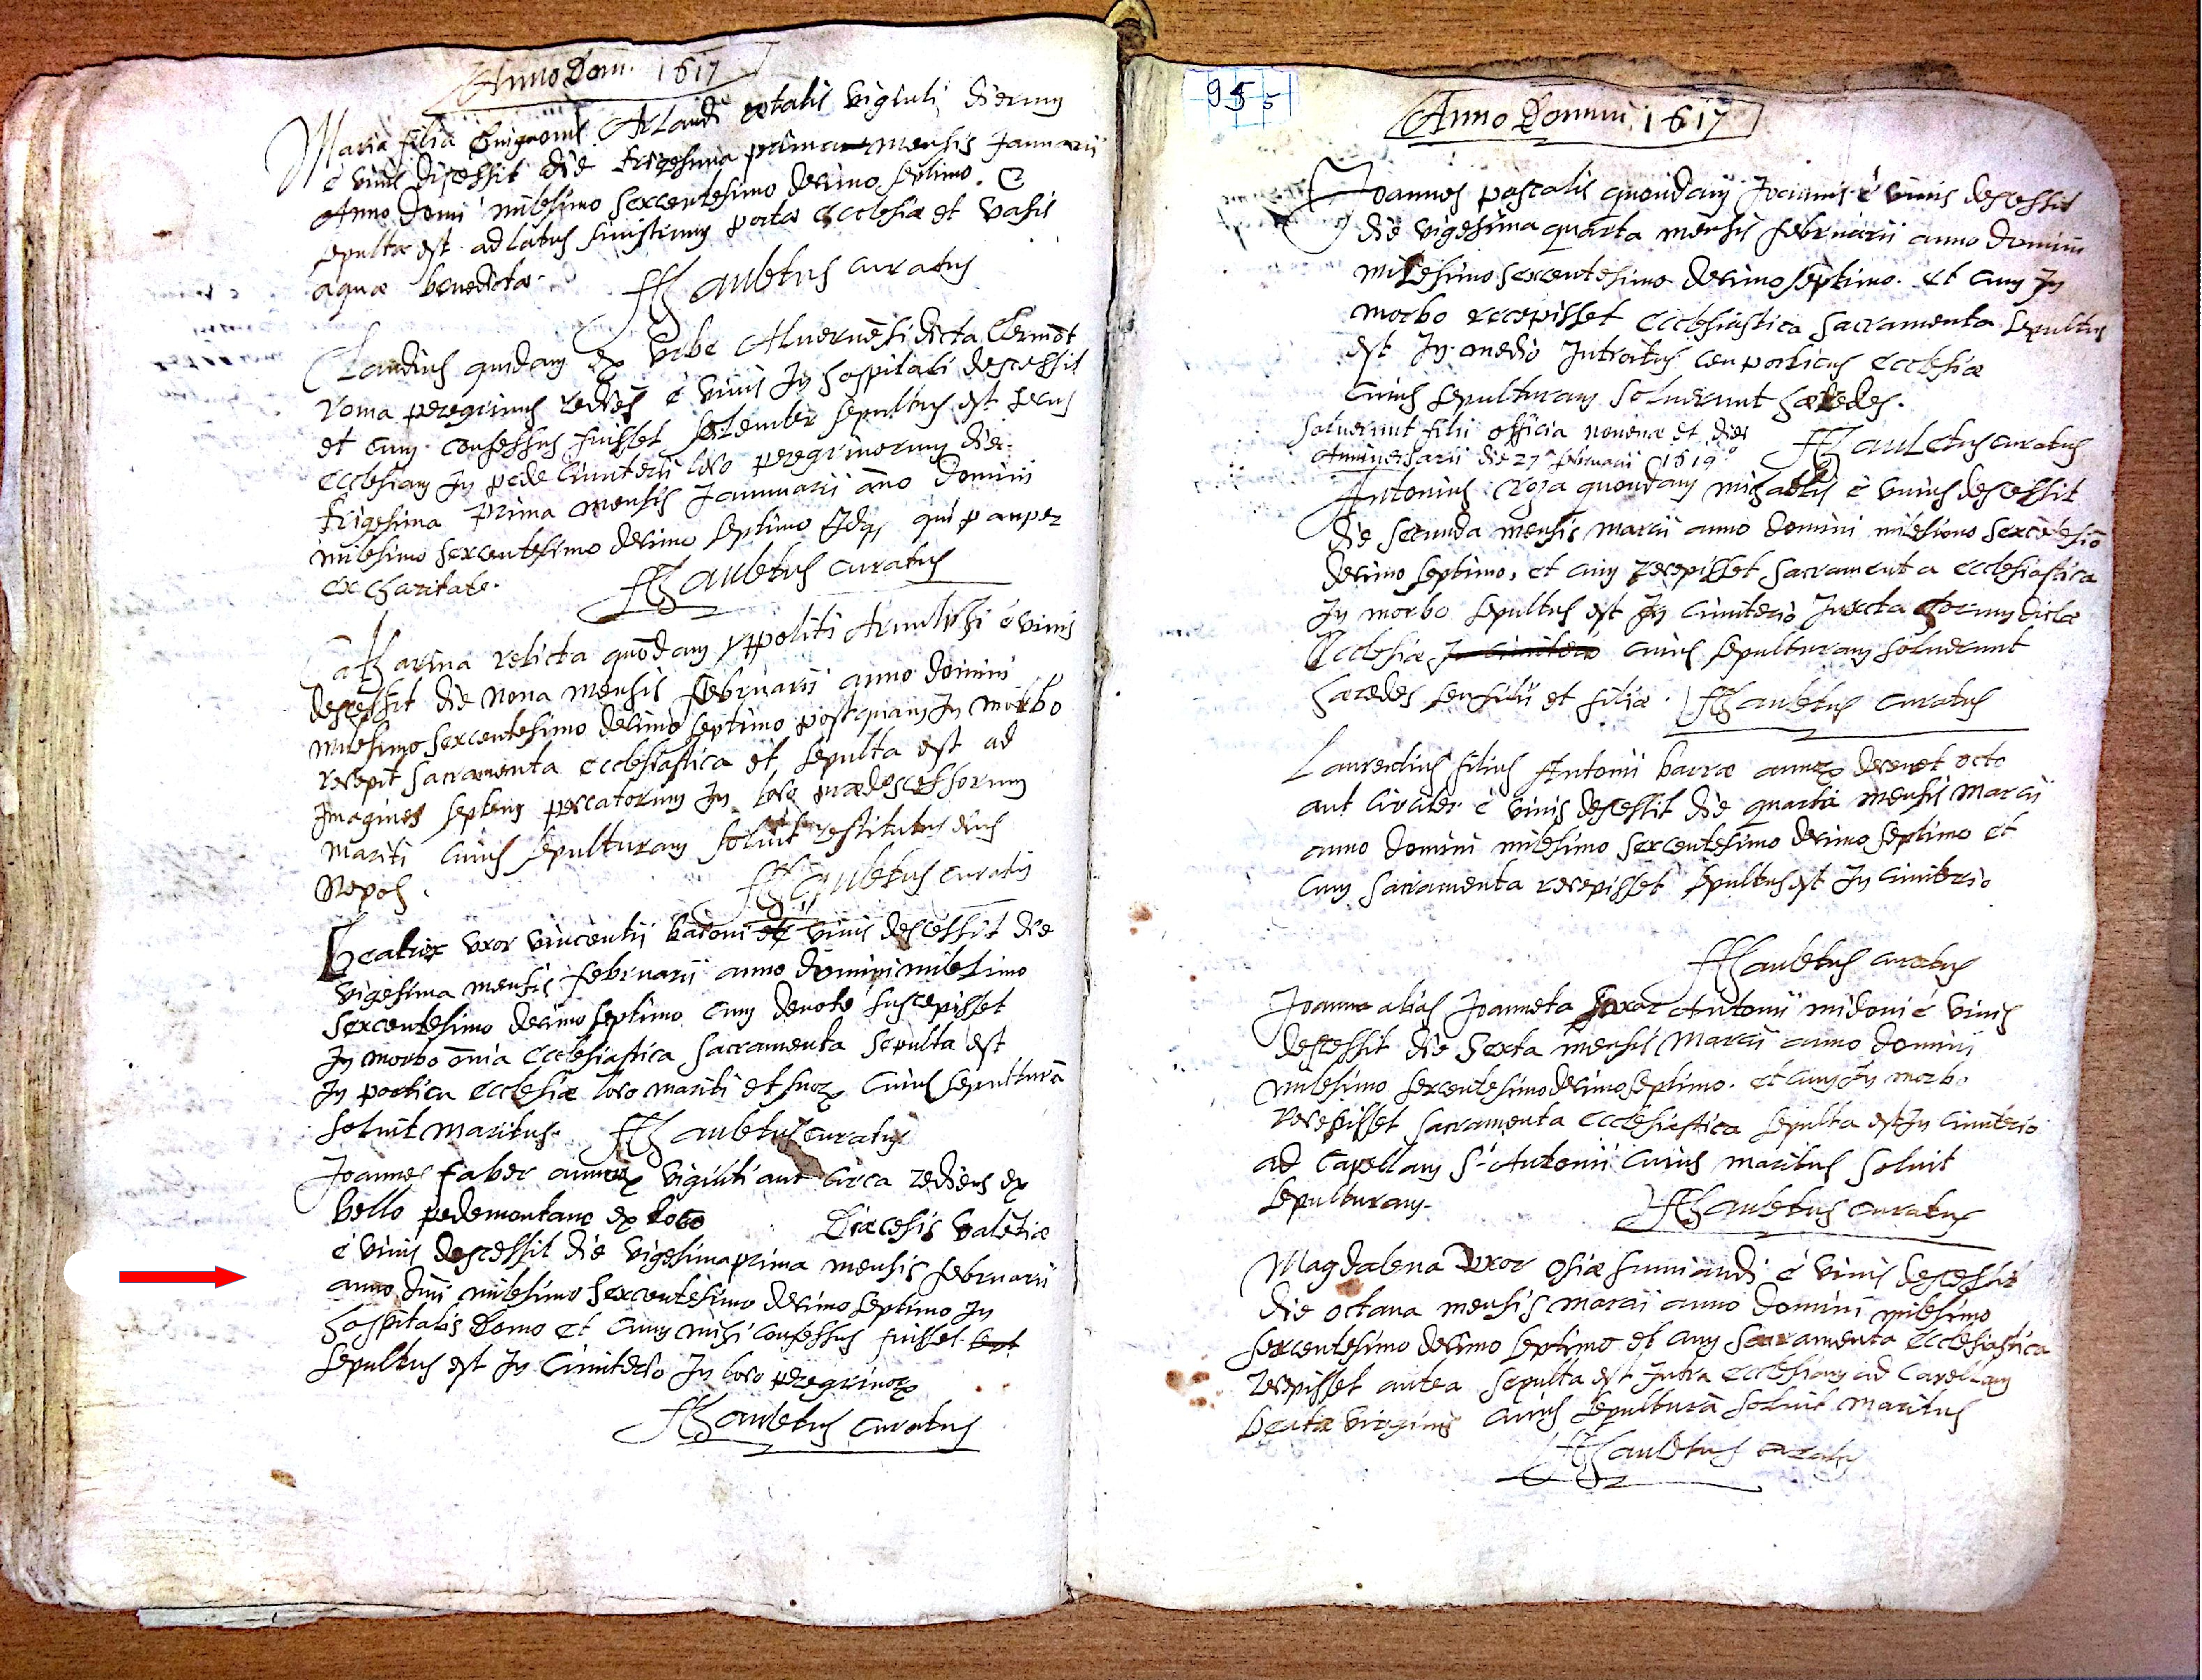 Anno Dom. 1617
Maria filia Guigonis Arlaudi ætatis viginti dierum
è vivis discessit die trigesima prima mensis Januarii
Anno Domi milesimo sexcentesimo decimo septimo. &
sepulta est ad latus sinistrum portæ Ecclesiæ et vasis
aquæ benedictæ.
curatus
Claudius quidam ex Urbe Alvernēsi dicta Clermōt
roma peregrinus rediēs è vivis In hospitali descessit
et cum confessus fuisset sepultus est secus
Ecclesiam In pede Cimiterii loco peregrinorum die
trigesima prima mensis Januarii año Domini
milesimo sexcentesimo decimo septimo qui pauper
ex charitate.
curatus
Catharina relicta quōdam yppoliti Arnulphi è vivis
descessit die nona mensis februarii anno domini
milesimo sexcentesimo decimo septimo postquam In morbo
recepit sacramenta ecclesiastica et sepulta est ad
Imagines septem peccatorum In loco prædecessorum
mariti cuius sepulturam solvit restitutus eius
Nepos.
curatus
Beatrix uxor vincentii baroni è vivis descessit die
vigesima mensis februarii anno domini milesimo
sexcentesimo decimo septimo cum devote suscepisset
In morbo ōnia Ecclesiastica sacramenta sepulta est
In porticu Ecclesiæ loco mariti et suorʒ cuius sepulturā
solvit maritus. curatus
Joannes faber annorʒ viginti aut circa rediens ex
bello pedemontano ex loco Diœcesis valētiæ
è vivis descessit die vigesima prima mensis februarii
anno Dñi milesimo sexcentesimo decimo septimo In
hospitalis Domo et cum mihi confessus fuisset
sepultus est In Cimiterio In loco peregrinorʒ
curatus
95 5
Anno Domini 1617
Joannes pascalis quondam Joannis è vivis descessit
die vigesima quarta mensis februarii anno domini
milesimo sexcentesimo decimo septimo. et cum In
morbo recepisset Ecclesiastica Sacramenta sepultus
est In medio Introitus seu porticus Ecclesiæ
cuius sepulturam solverunt hæredes.
Solverunt filii officia novenæ et diei
Anniversarii die 27ª februarii 1619
curatus
Antonius quondam michaelis è vivis descessit
die secunda mensis marcii anno domini milesimo sexcētesimo
decimo septimo, et cum recepisset sacramenta ecclesiastica
In morbo sepultus est In Cimiterio Juxta dictæ
Ecclesiæ In cimiterio cuius sepulturam solverunt
hæredes seu filii et filiæ. curatus
Laurentius filius Antonii barræ annorʒ decem et octo
aut circiter è vivis descessit die quarta mensis Marcii
anno domini milesimo sexcentesimo decimo septimo et
cum sacramenta recepisset sepultus est In cimiterio
curatus
Joanna alias Joanneta Antonii midoni è vivis
descessit die Sexta mensis Marcii anno domini
milesimo sexcentesimo decimo septimo. et cum In morbo
recepisset sacramenta Ecclesiastica sepulta est In cimiterio
ad Capellam Sti Antonii cuius maritus solvit
sepulturam.
curatus
Magdalena Uxor osiæ è vivis descessit
die octava mensis marcii anno Domini milesimo
sexcentesimo decimo septimo et cum sacramenta Ecclesiastica
recepisset antea sepulta est Intra Ecclesiam ad Capellam
beatæ virginis cuius sepulturā solvit maritus
curatus